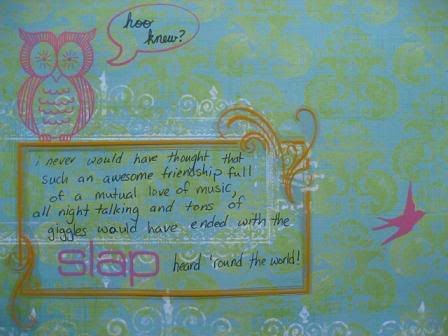 hoo
knew?
i never would have thought that
such an awesome friendship full
of a mutual love of music,
all night talking and tons of
giggles would have ended with the
slap heard 'round the world!